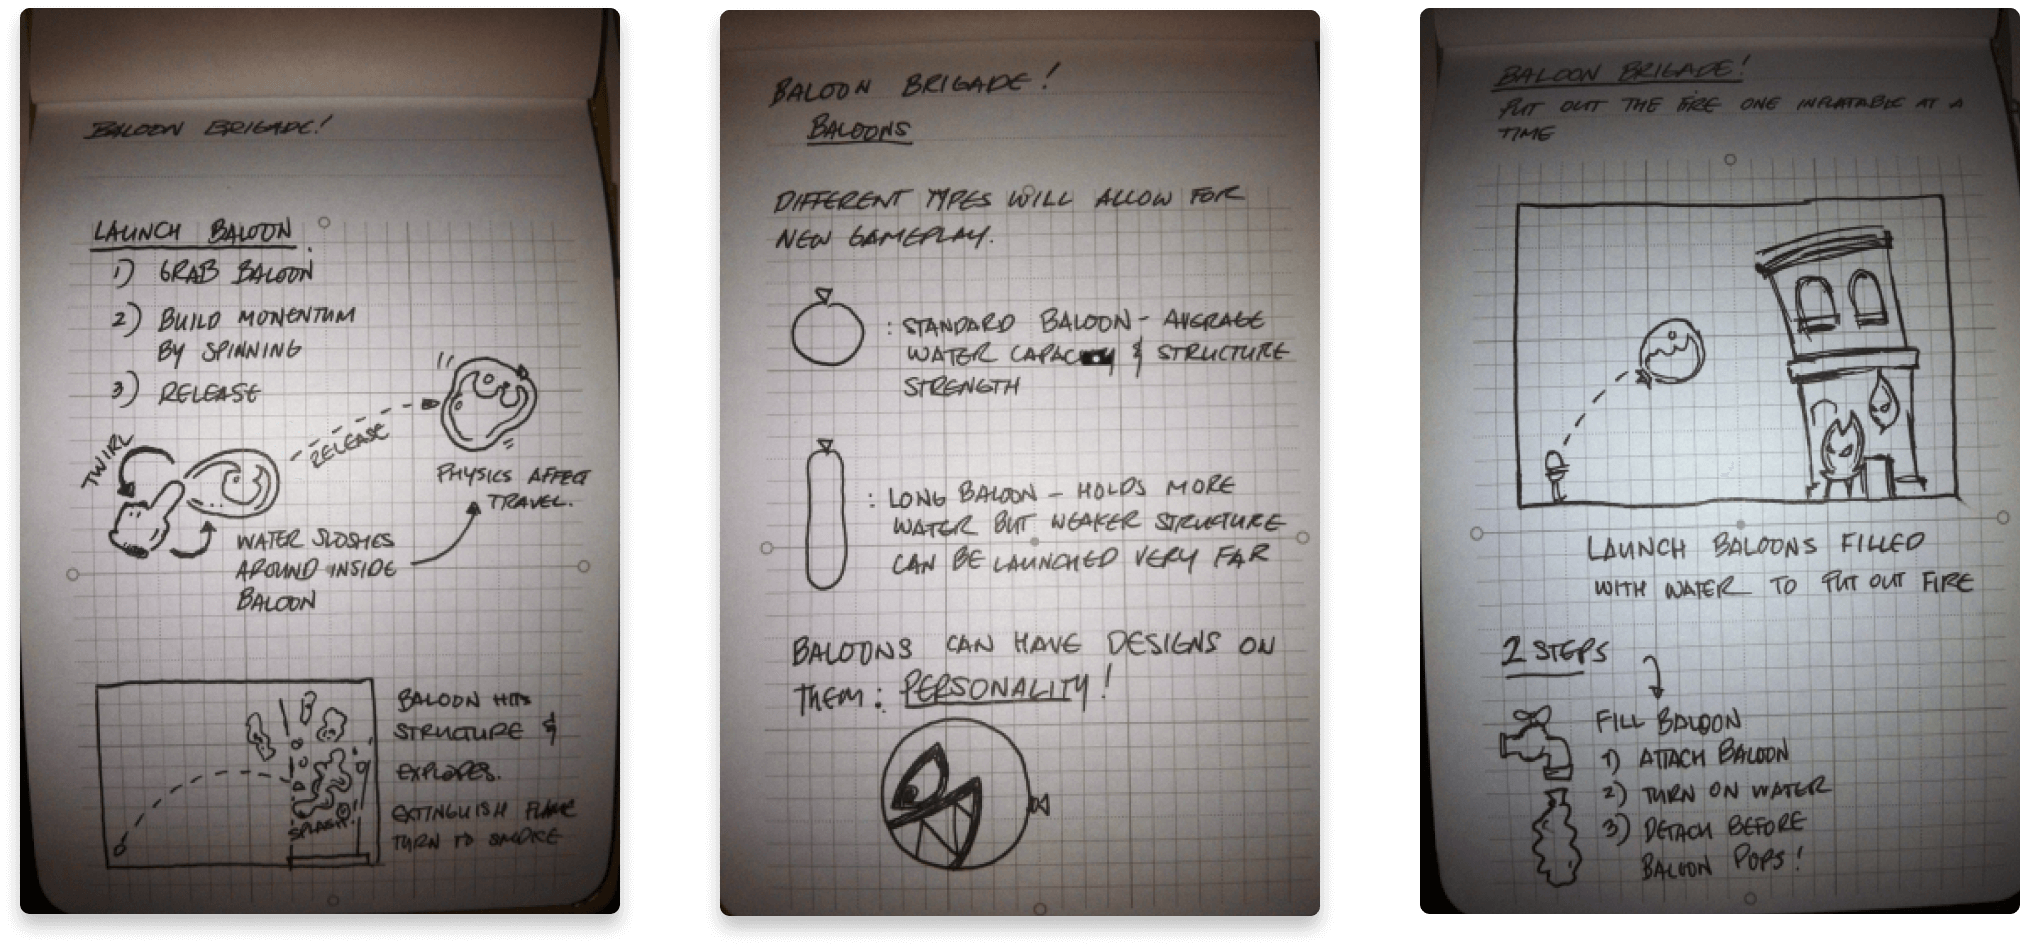 BALOON BRIGADE!
LAUNCH BALOON
1) GRAB BALOON
2) BUILD MOMENTUM
BY SPINNING
3) RELEASE
TWIRL
RELEASE
PHYSICS AFFECT
TRAVEL.
WATER SLOSHES
AROUND INSIDE
BALOON
BALOON HITS
STRUCTURE &
EXPLODES.
EXTINGUISH FLAME
TURN TO SMOKE
SPLASH!
BALOON BRIGADE!
BALOONS
DIFFERENT TYPES WILL ALLOW FOR
NEW GAMEPLAY.
: STANDARD BALOON - AVERAGE
WATER CAPACITY & STRUCTURE
STRENGTH
: LONG BALOON - HOLDS MORE
WATER BUT WEAKER STRUCTURE
CAN BE LAUNCHED VERY FAR
BALOONS CAN HAVE DESIGNS ON
THEM: PERSONALITY!
BALOON BRIGADE!
PUT OUT THE FIRE ONE INFLATABLE AT A
TIME
LAUNCH BALOONS FILLED
WITH WATER TO PUT OUT FIRE
2 STEPS
FILL BALOON
1) ATTACH BALOON
2) TURN ON WATER
3) DETACH BEFORE
BALOON POPS!